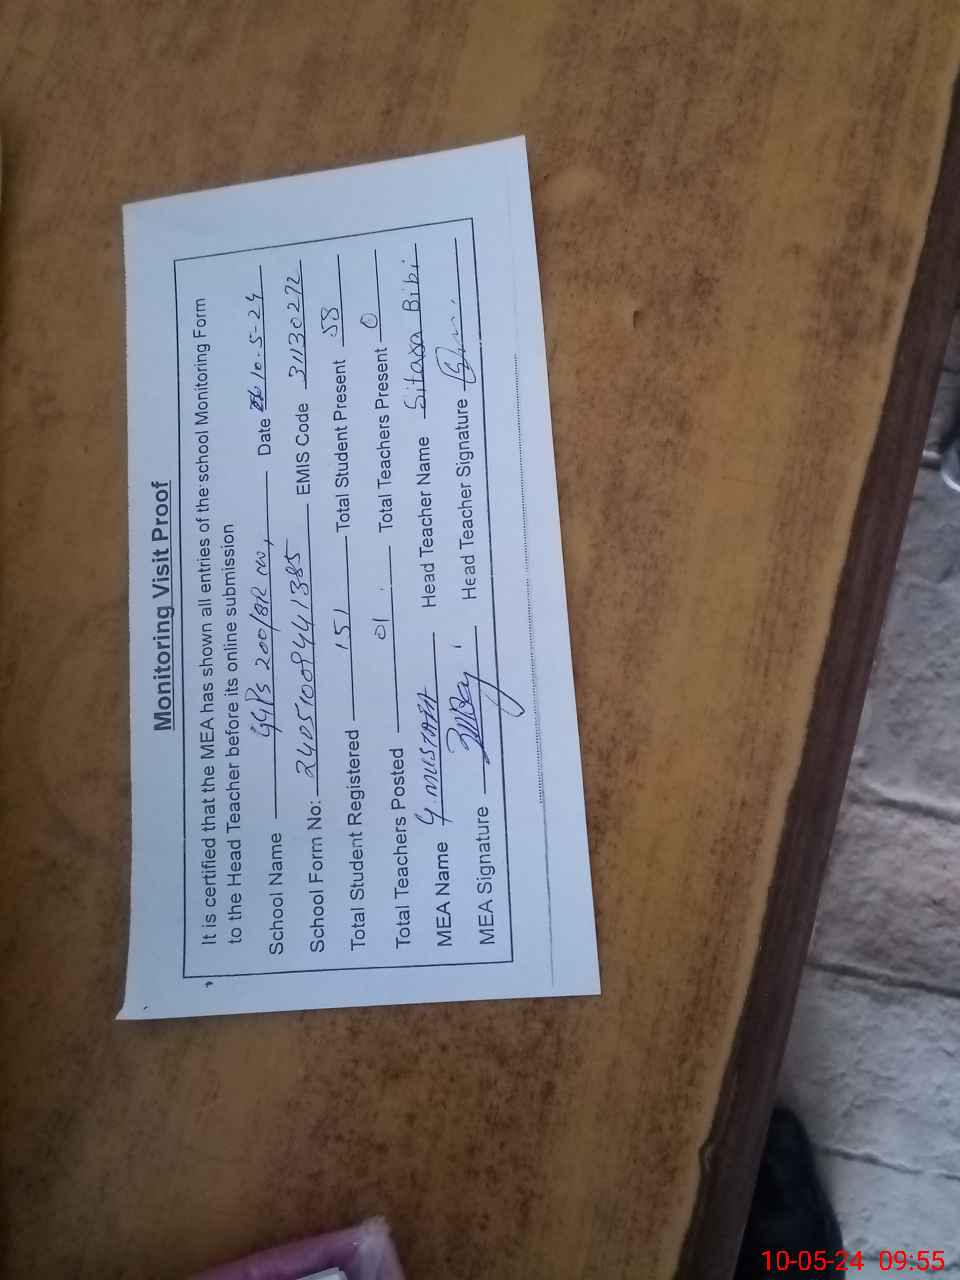 Monitoring Visit Proof
It is certified that the MEA has shown all entries of the school Monitoring Form
to the Head Teacher before its online submission
School Name GGPS 200/BR Date 10-5-24
School Form No: 24051009441385 EMIS Code 31130272
Total Student Registered 151 Total Student Present 58
Total Teachers Posted 01 Total Teachers Present 0
MEA Name G. MUSTAFA Head Teacher Name Sitara Bibi
MEA Signature Head Teacher Signature
10-05-24 09:55